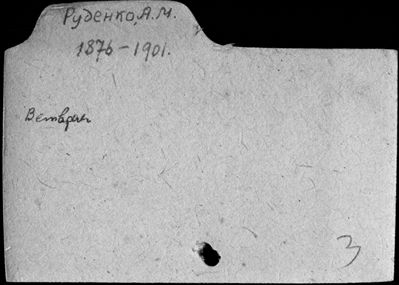 Руденко, А.М.
1876-1901.
Ветврач
3